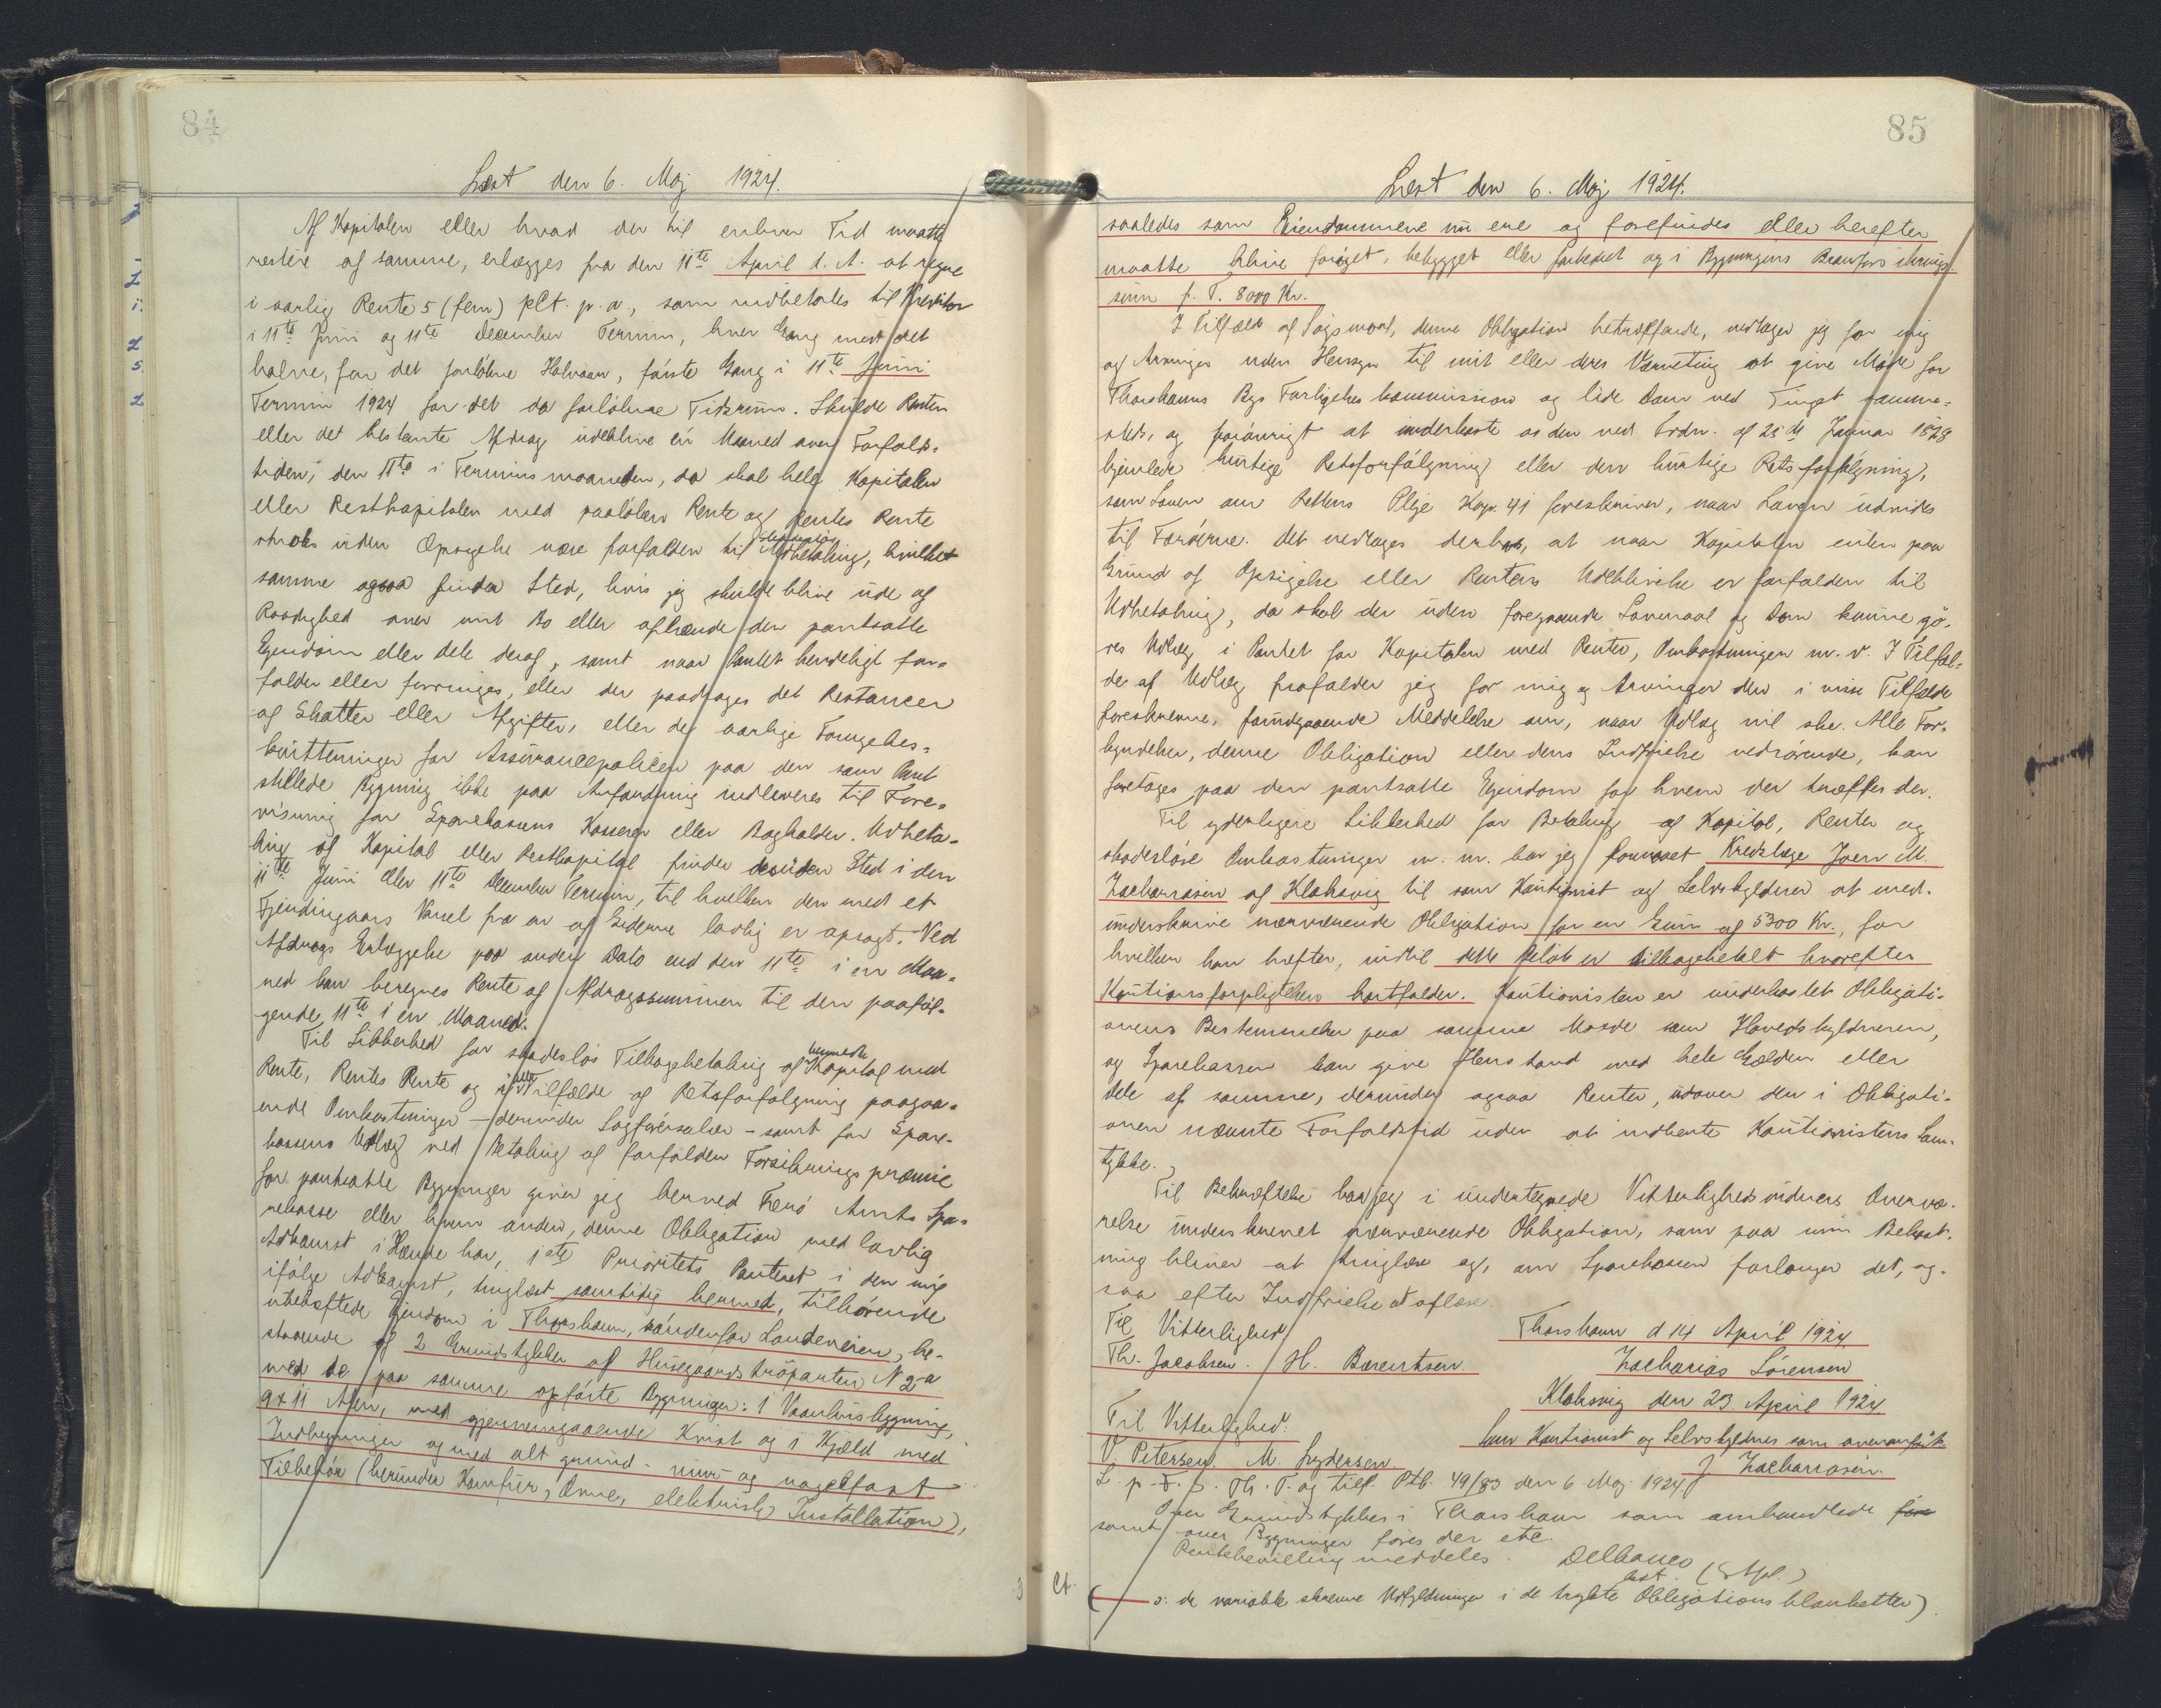 84
Læst den 6. Maj 1924.
Af Kapitalen eller hvad der til enhver Tid maatte
restere af samme, erlægges fra den 11te April d. A. at regne
i aarlig Rente 5 (fem) pCt. p. a., som indbetales til Kreditor
i 11te Juni og 11te December Termin, hver Gang med det
halve, for det forløbne Halvaar, første Gang i 11te Juni
Termin 1924 for det da forløbne Tidsrum. Skulde Renten
eller det bestemte Afdrag udeblive én Maaned over Forfalds-
tiden, den 11te i Terminsmaaneden, da skal hele Kapitalen
eller Restkapitalen med paaløben Rente og Rentes Rente
straks uden Opsigelse være forfalden til skadesløs Udbetaling, hvilket
samme ogsaa finder Sted, hvis jeg skulde blive ude af
Raadighed over mit Bo eller afhænde den pantsatte
Ejendom eller dele deraf, samt naar Pantet kendeligt for-
falder eller forringes, eller der paadrages det Restancer
af Skatter eller Afgifter, eller de aarlige Fornyelses-
kvitteringer for Assurancepolicen paa den som Pant
stillede Bygning ikke paa Anfordring indleveres til Fore-
visning for Sparekassens Kasserer eller Bogholder. Udbeta-
ling af Kapital eller Restkapital finder desuden Sted i den
11te Juni eller 11te December Termin, til hvilken den med et
Fjerdingaars Varsel fra en af Siderne lovlig er opsagt. Ved
Afdrags Erlæggelse paa anden Dato end den 11te i en Maa-
ned kan beregnes Rente af Afdragssummen til den paaføl-
gende 11te i en Maaned.
Til Sikkerhed for skadesløs Tilbagebetaling af bemeldte Kapital med
Rente, Rentes Rente og alle i Tilfælde af Retsforfølgning paagaa-
ende Omkostninger - derunder Sagførersalær - samt for Spare-
kassens Udlæg ved Betaling af forfalden Forsikringspræmie
for pantsatte Bygninger giver jeg herved Færø Amts Spa-
rekasse eller hvem anden, denne Obligation med lovlig
Adkomst i Hænde har, 1ste Prioritets Panteret i den mig
ifølge Adkomst, tinglæst samtidig hermed, tilhørende
ubehæftede Ejendom i Thorshavn, søndenfor Landevejen, be-
staaende af 2 Grundstykker af Husegaardstrøparten N 2a
med de paa samme opførte Bygninger: 1 Vaaenhusbygning,
9 x 11 Alen, med gjennemgaaende Kvist og 1 Kjæld med
Indbygninger og med alt grund- mur- og nagelfast
Tilbehør (herunder Komfur, Ovne, elektrisk Installation),
85
Læst den 6. Maj 1924.
saaledes som Eiendommene nu ere og forefindes eller herefter
maatte blive forøget, bebygget eller forbedret og i Bygningens Brandforsikrings
sum p. T. 8000 Kr.
I Tilfælde af Søgsmaal, denne Obligation betræffende, vedtager jeg for mig
og Arvinger uden Hensyn til mit eller deres Værneting at give Møde for
Thorshavns Bys Forligelseskommission og lide Dom ved Tinget samme-
steds, og forøvrigt at underkaste os den ved Frdn. af 25de Januar 1828
hjemlede hurtige Retsforfølgning eller den hurtige Retsforfølgning,
som Loven om Rettens Pleje Kap. 41 foreskriver, naar Loven udvides
til Færøerne. Det vedtages derhos, at naar Kapitalen enten paa
Grund af Opsigelse eller Rentens Udeblivelse er forfalden til
Udbetaling, da skal der uden foregaaende Lovmaal og Dom kunne gø-
res Udlæg i Pantet for Kapitalen med Renter, Omkostninger m. v. I Tilfæl-
de af Udlæg frafalder jeg for mig og Arvinger den i visse Tilfælde
foreskrevne, forudgaaende Meddelelse om, naar Udlæg vil ske. Alle For-
kyndelser, denne Obligation eller dens Indfrielse vedrørende, kan
foretages paa den pantsatte Ejendom for hvem der træffes der.
Til yderligere Sikkerhed for Betaling af Kapital, Renter og
skadesløse Omkostninger m. m. har jeg formaaet Kredslæge Joen M.
Zachariasen af Klaksvig til som Kautionist og Selvskyldner at med-
underskrive nærværende Obligation for en Sum af 5300 Kr., for
hvilken han hæfter, indtil dette Beløb er tilbagebetalt hvorefter
Kautionsforpligtelsen bortfalder. Kautionisten er underkastet Obligati-
onens Bestemmelser paa samme Maade som Hovedskyldneren,
og Sparekassen kan give Henstand med hele Gælden eller
dele af samme, derunder ogsaa Renter, udover den i Obligati-
onen nævnte Forfaldstid uden at indhente Kautionistens Sam-
tykke.
Til Bekræftelse har jeg i undertegnede Vitterlighedsvidners Overvæ-
relse underskrevet nærværende Obligation, som paa min Bekost-
ning bliver at tinglæse og, om Sparekassen forlanger det, og-
saa efter Indfrielse at aflæse.
Til Vitterlighed:
Thorshavn d 14 April 1924
Th. Jacobsen. H. Berentsen
Zacharias Sørensen
Klaksvig den 23 April 1924
Til Vitterlighed:
Som Kautionist og Selvskyldner som ovenanført
V. Petersen M. Lydersen
J. Zachariasen.
L. p. F. f. Th. T. og tilf. Ptb. 49/83 den 6. Maj 1924.
Over Grundstykker i Thorshavn som omhandlede
samt over Bygninger føres der etc.
Rentebevilling meddeles. Delbanco
cst. (Stpl.)
Ct.
( ɔ: de variable skrevne Udfyldninger i de trykte Obligationsblanketter)